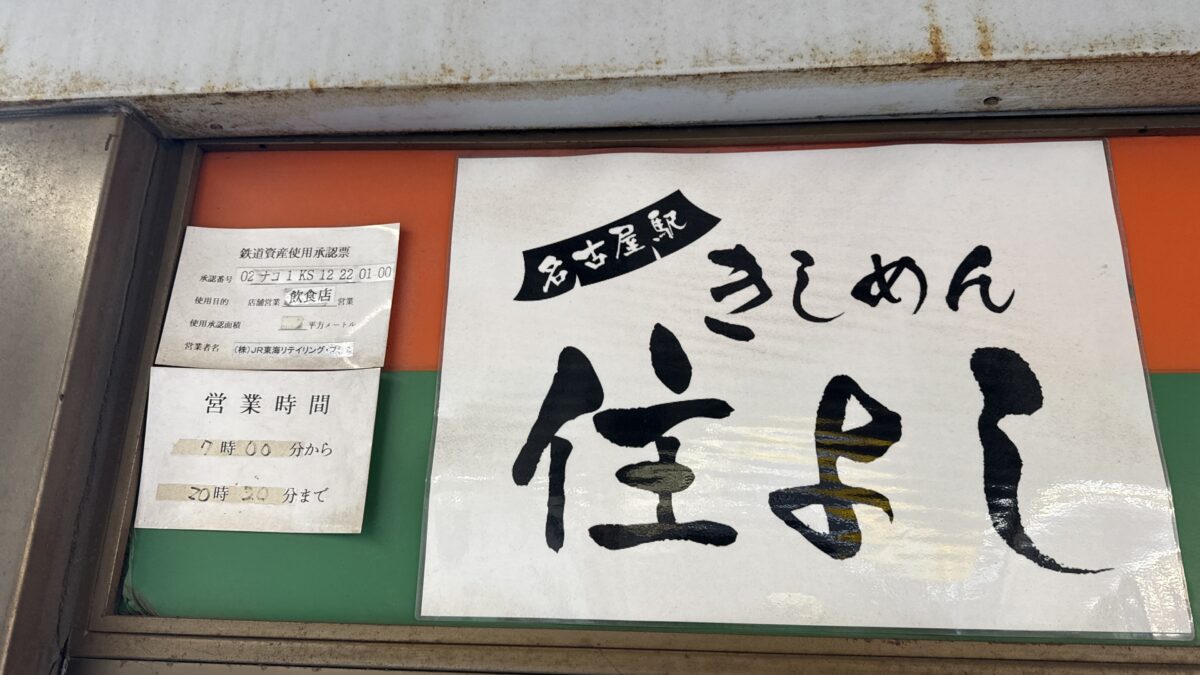 鉄道資産使用承認票
承認番号 02 ナコ 1 KS 12 22 01 00
使用目的 店舗営業 飲食店 営業
使用承認面積 平方メートル
営業者名 (株)JR東海リテイリング・プ
営業時間
7時00分から
20時20分まで
名古屋駅
きしめん
住よし